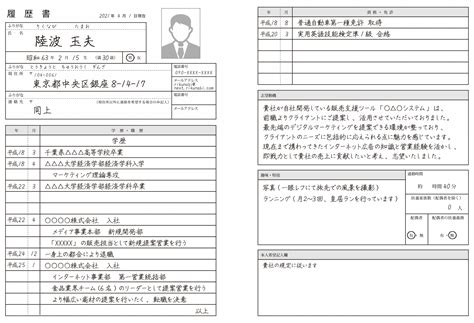 履歴書
2021年 4月 1日現在
ふりがな りくなび たまお
陸波 玉夫
昭和63年 2月 15日 (満30歳)
男・女
ふりがな とうきょうと ちゅうおうく ぎんざ
現住所 〒104-0061
東京都中央区銀座8-14-17
電話番号
090-XXXX-XXXX
メールアドレス
rikunabi@
next.rikunabi.com
同上
電話番号
メールアドレス
年 月 学歴・職歴
学歴
平成18 3 千葉県△△△高等学校卒業
平成18 4 △△△大学経済学部経済学科入学
マーケティング理論専攻
平成22 3 △△△大学経済学部経済学科卒業
平成22 4 ○○○○株式会社 入社
メディア事業本部 新規開発部
「XXXXX」の販売担当として新規提案営業を行う
平成24 12 一身上の都合により退職
平成25 1 ○○○○株式会社 入社
インターネット事業部 第一営業統括部
食品業界チーム(6名)のリーダーとして提案営業を行う
より幅広い商材の提案を行いたく、転職を決意
以上
年 月 資格・免許
平成18 8 普通自動車第一種免許 取得
平成20 3 実用英語技能検定準1級 合格
志望動機
貴社が自社開発している販売支援ツール「○△○システム」は、
前職よりクライアントにご提案し、活用させていただいておりました。
最先端のデジタルマーケティングを提案できる環境が整っており、
クライアントのニーズに包括的に応えられる点に魅力を感じています。
現在まで携わってきたインターネット広告の知識と営業経験を活かし、
即戦力として貴社に貢献したいと考え、志望いたしました。
趣味・特技
写真(一眼レフにて旅先での風景を撮影)
ランニング(月2~3回、皇居ランを行っています)
通勤時間
約 時間 40分
扶養家族数(配偶者を除く)
0 人
配偶者
有・無
配偶者の扶養義務
有・無
本人希望記入欄
貴社の規定に従います